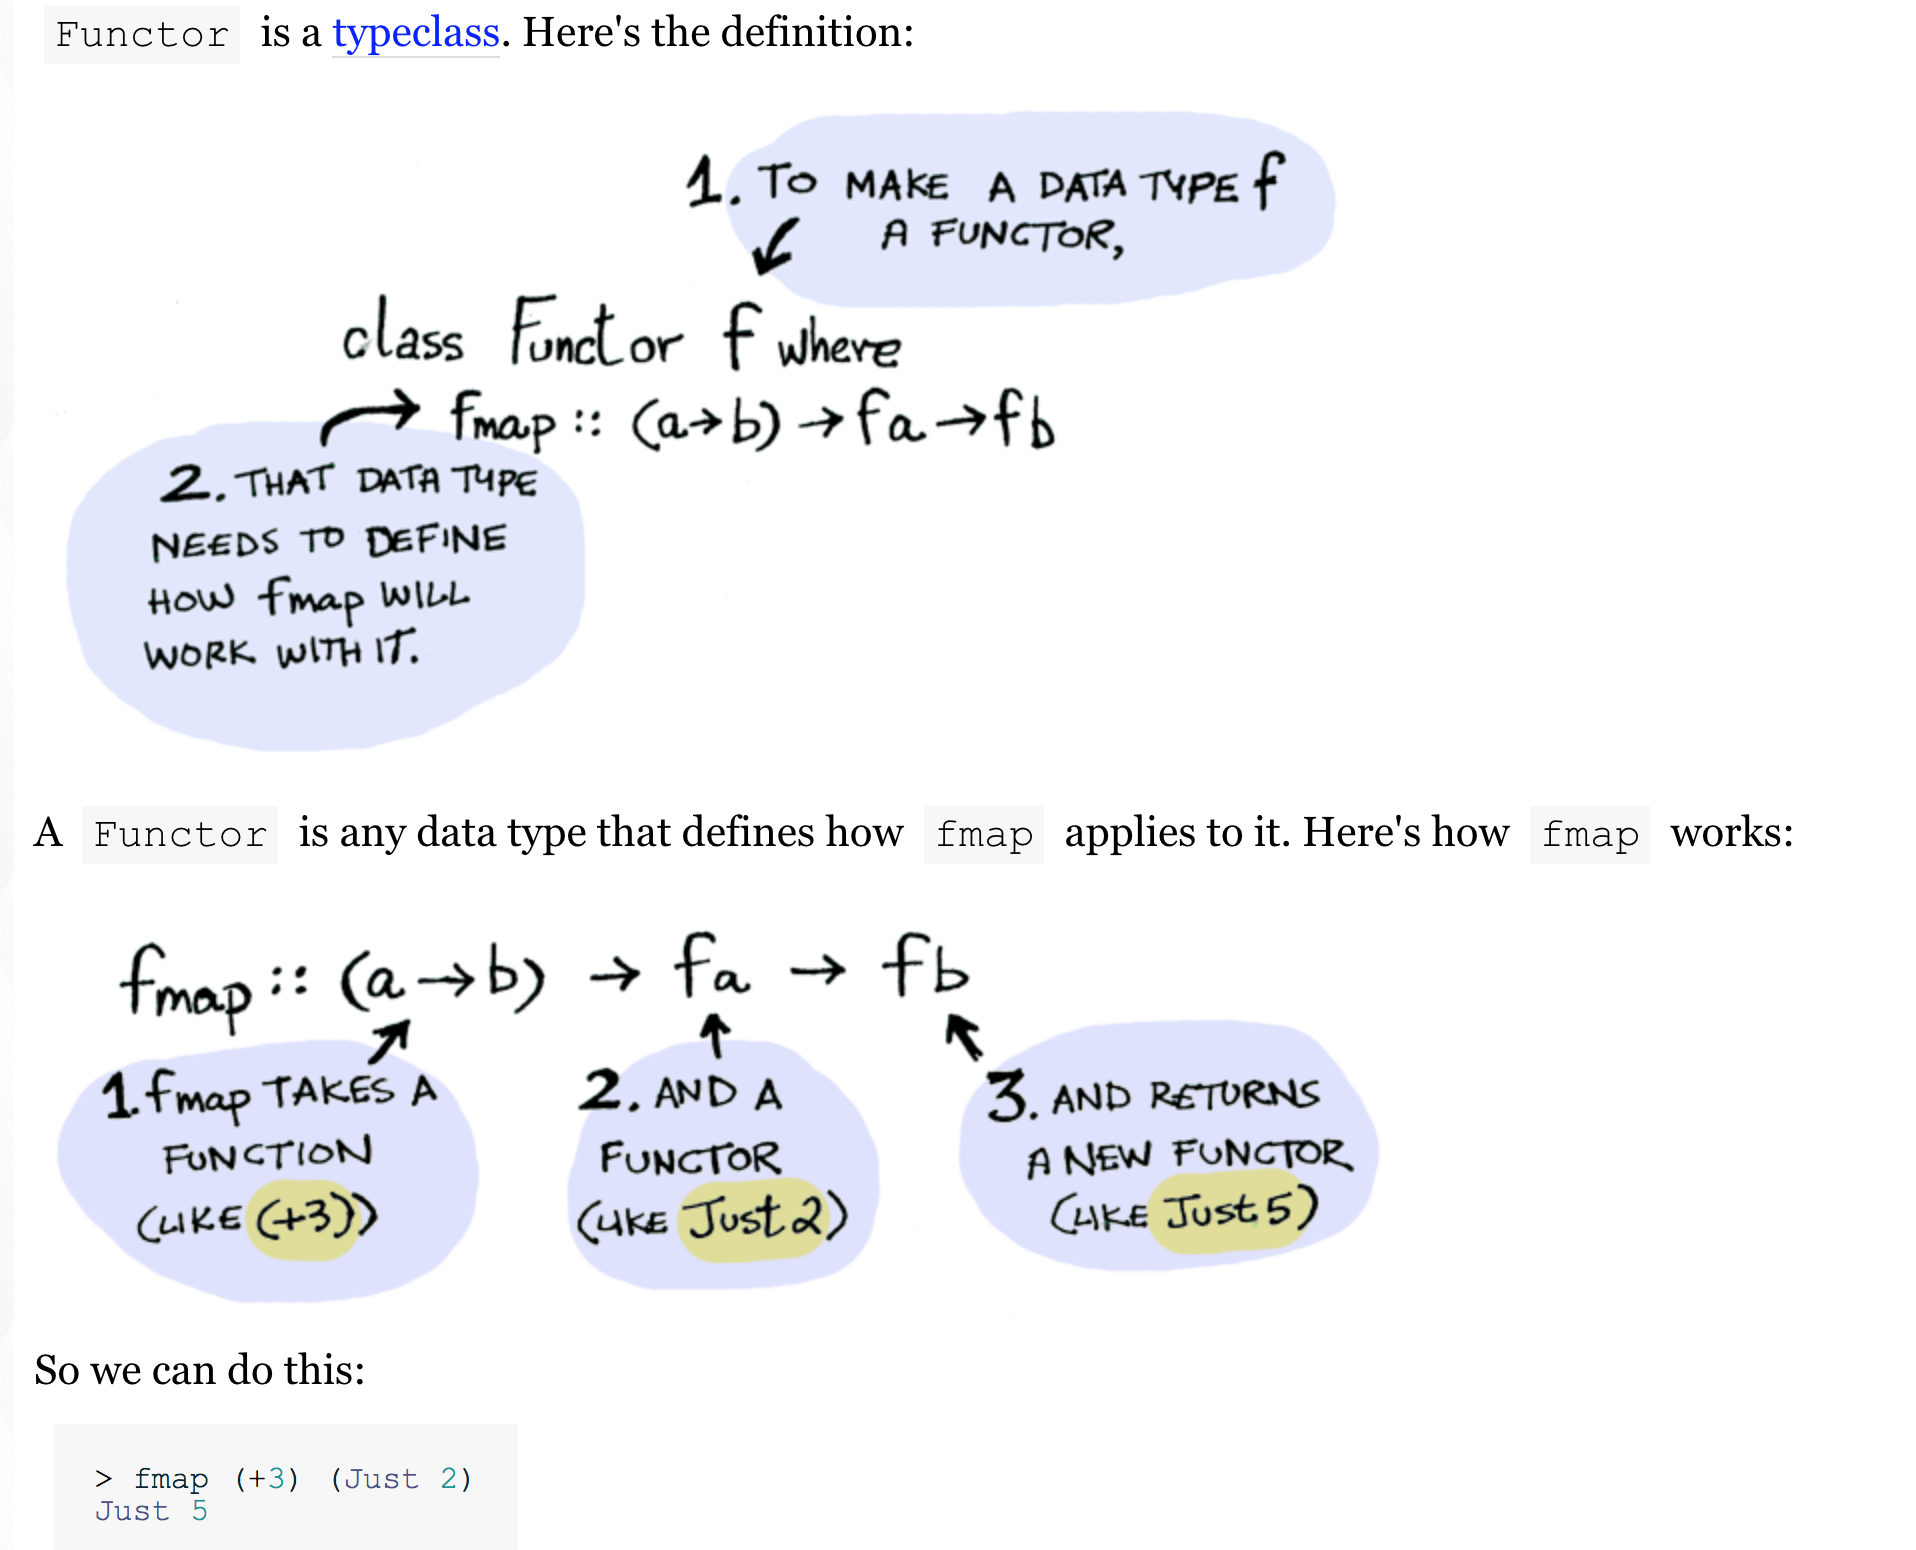 Functor is a typeclass. Here's the definition:
1. TO MAKE A DATA TYPE f
A FUNCTOR,
class Functor f where
fmap :: (a→b) → fa → fb
2. THAT DATA TYPE
NEEDS TO DEFINE
HOW fmap WILL
WORK WITH IT.
A Functor is any data type that defines how fmap applies to it. Here's how fmap works:
fmap :: (a→b) → fa → fb
1. fmap TAKES A
FUNCTION
(LIKE (+3))
2. AND A
FUNCTOR
(LIKE Just 2)
3. AND RETURNS
A NEW FUNCTOR
(LIKE Just 5)
So we can do this:
> fmap (+3) (Just 2)
Just 5